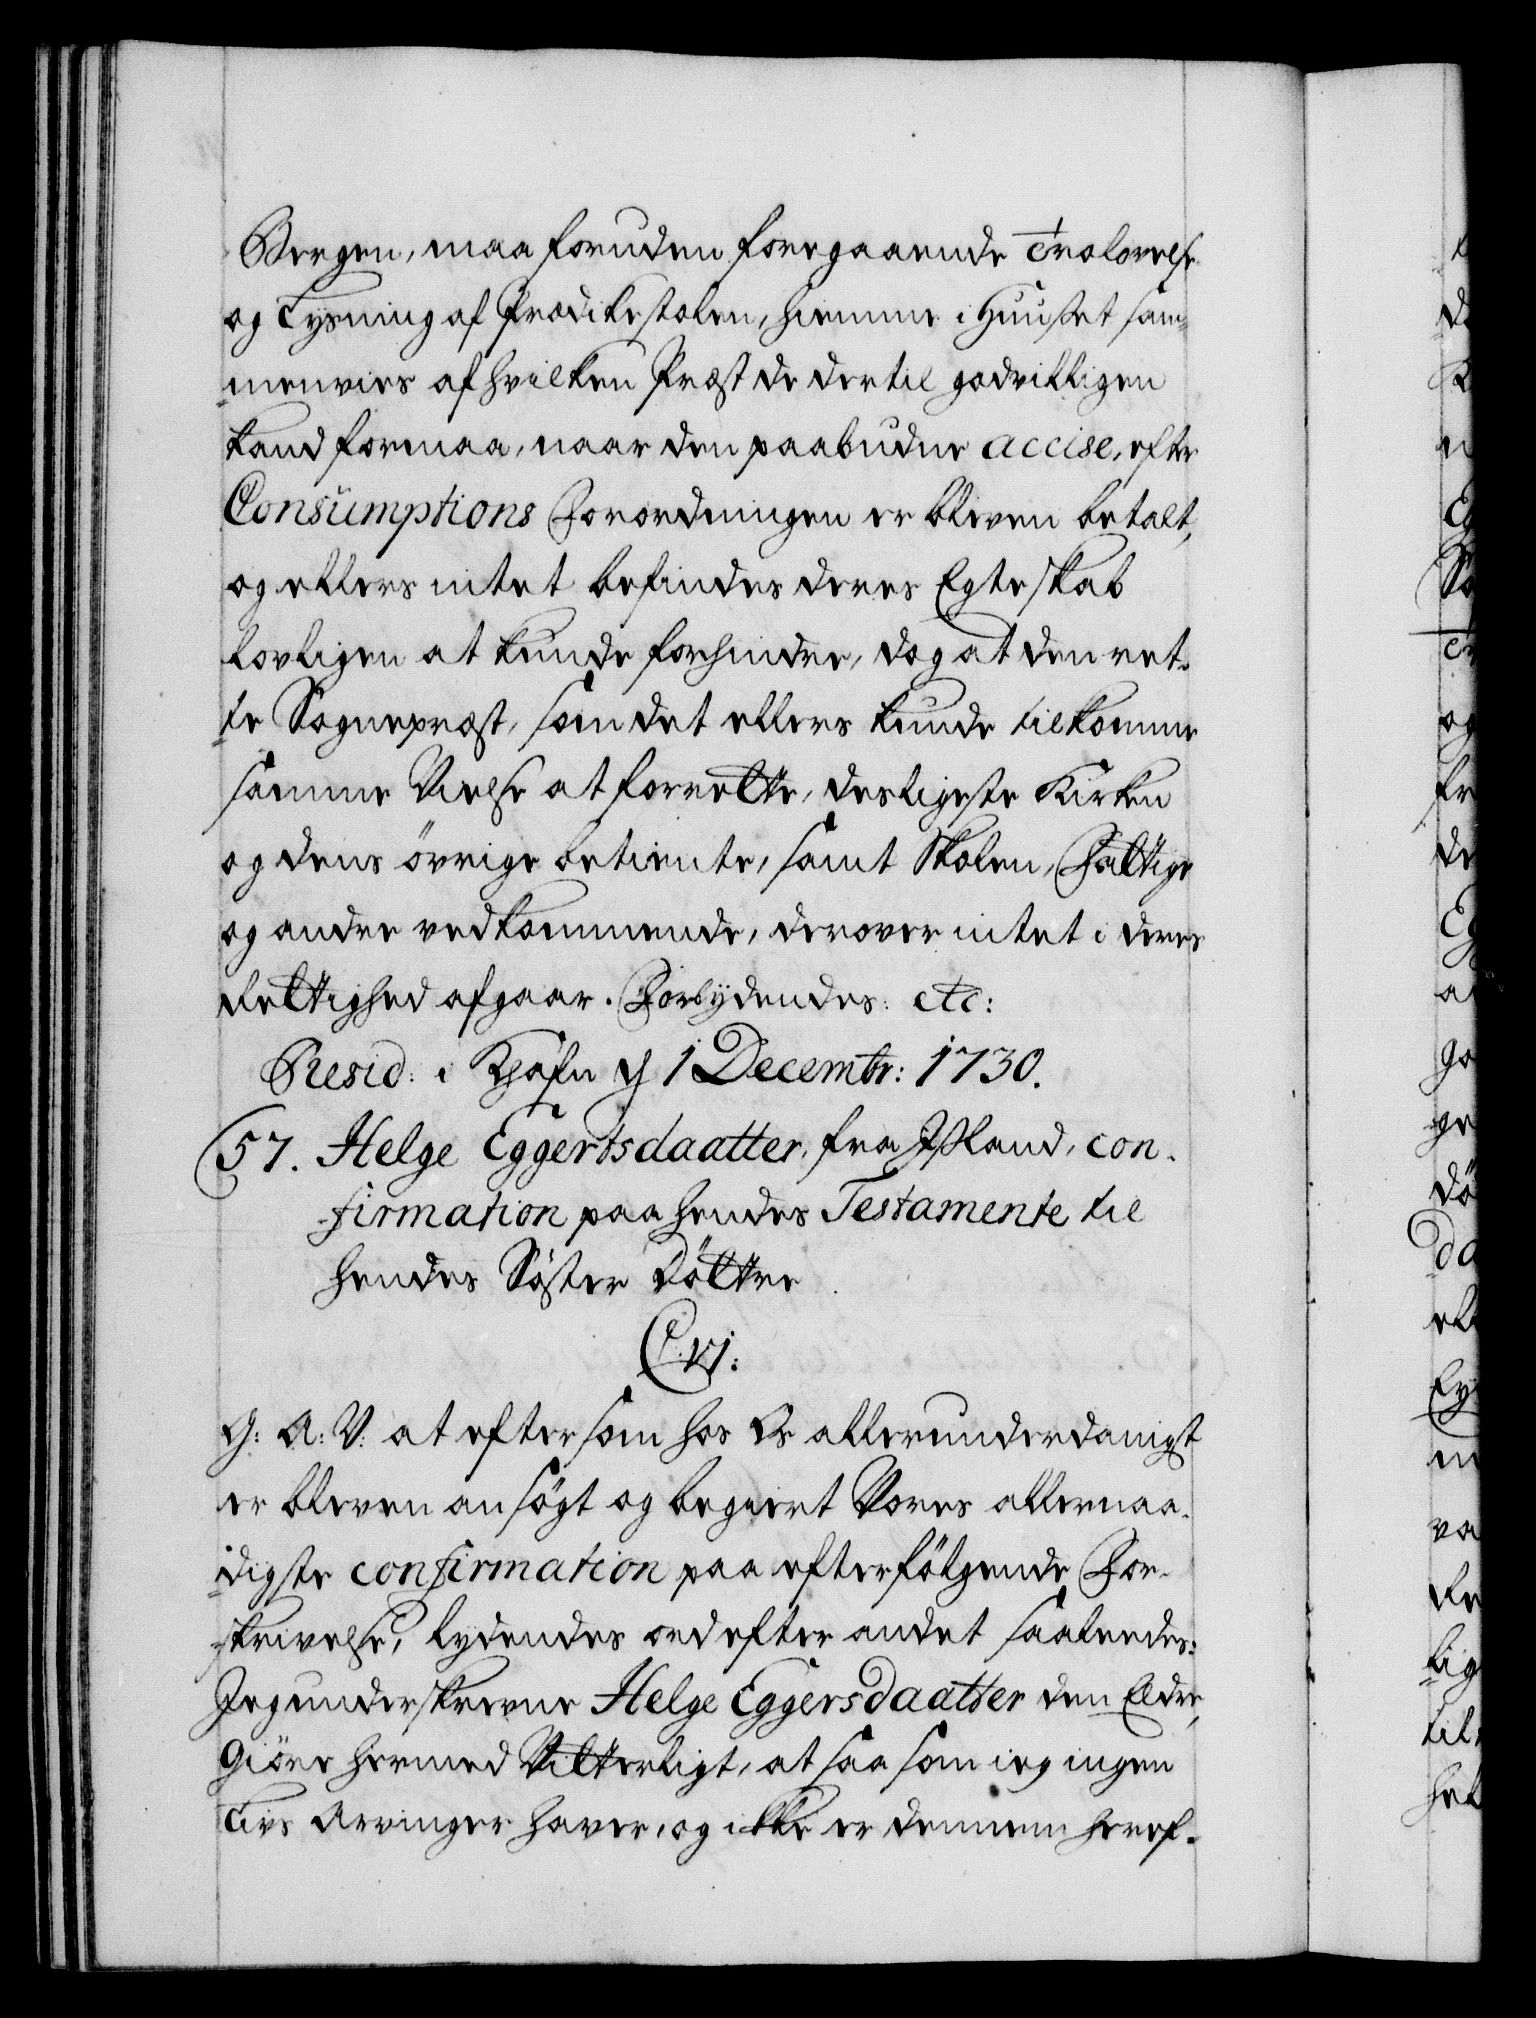 Bergen, maa foruden foregaaende Trolovelse
og Lysning af Prædikestolen, hiemme i Huuset sam-
menvies af hvilken Præst de dertil godvilligen
kand formaa, naar den paabudne accise, efter
Consumptions Forordningen er bleven betalt,
og ellers intet befindes deres Egteskab
lovligen at kunde forhindre, dog at den ret-
te Sognepræst, som det ellers kunde tilkomme
samme Vielse at forrette, desligeste Kirken
og dens övrige betiente, samt Skolen, Fattige
og andre vedkommende, derover intet i deres
Rettighed afgaar. Forbydendes: etc:
Resid: i Kjøfn d 1 Decembr: 1730.
57. Helge Eggertsdaatter, fra Jsland, con-
firmation paa hendes Testamente til
hendes Söster Döttre
C. vj:
G: A: V: at eftersom hos Os allerunderdanigst
er bleven ansögt og begiert Vores allernaa-
digste confirmation paa efterfölgende For-
skrivelse, lydendes ord efter andet saaledes:
Jeg underskrevne Helge Eggersdaatter den Eldre,
Giöre hermed Vitterligt, at saasom ieg ingen
Livs Arvinger haver, og ikke er dennem heref-